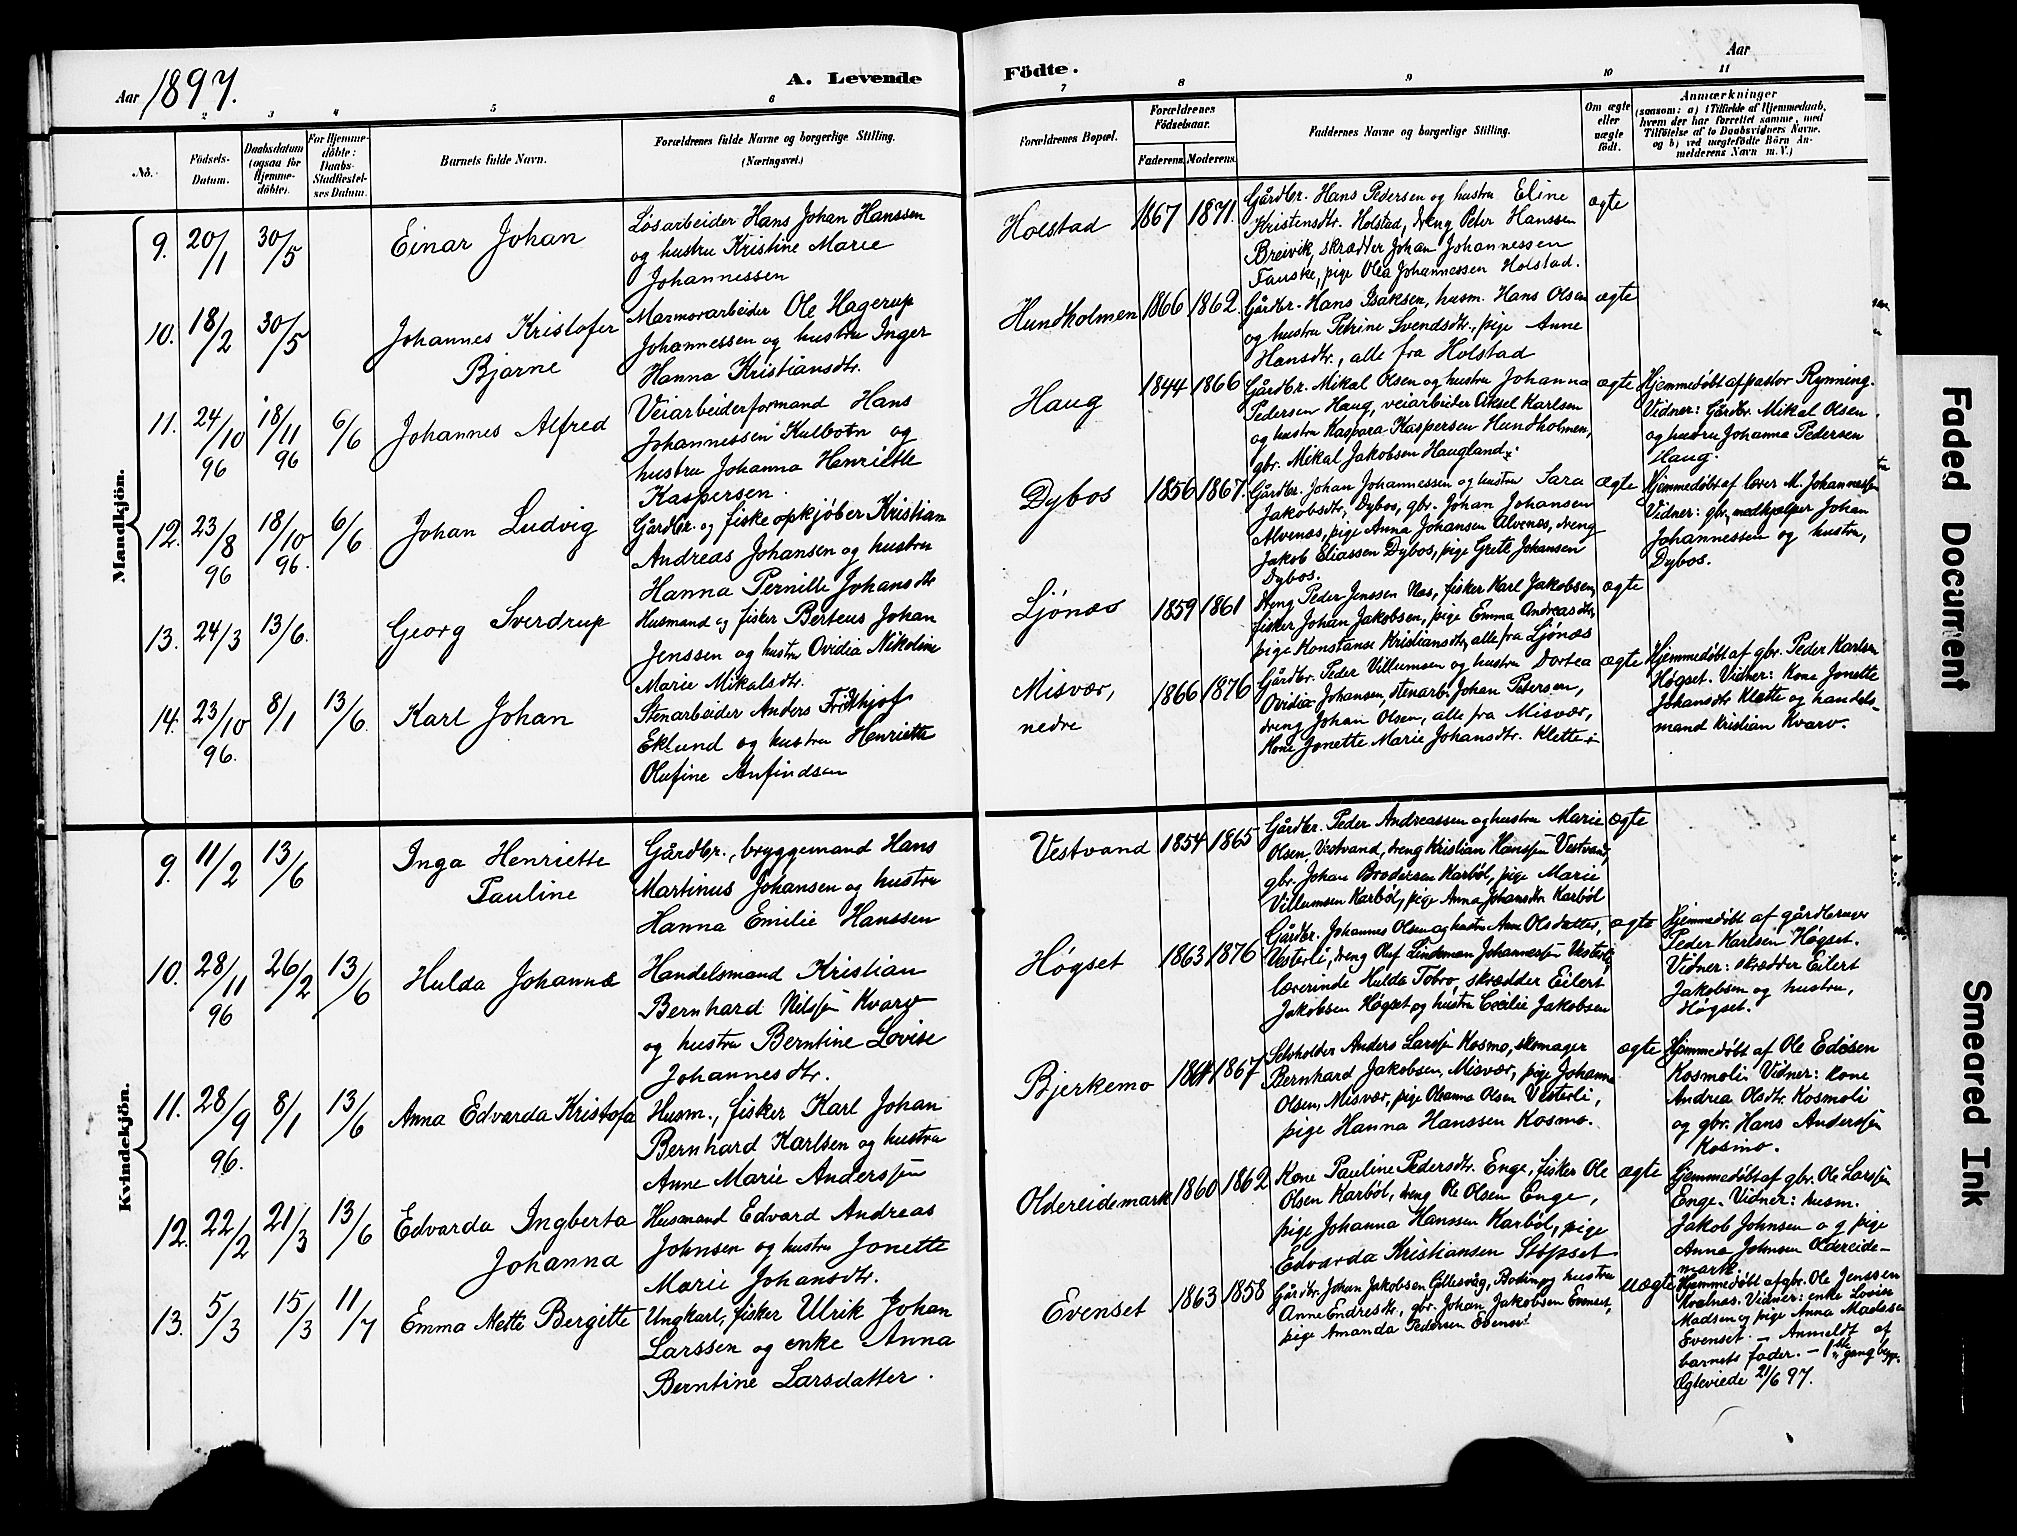 Aar 1897.
A. Levende
Födte.
Aar
2 3 4 5 6 7 8 9 10 11
No.
Födsels-
Datum.
Daabsdatum
(ogsaa for
Hjemme-
döbte).
For Hjemme-
döbte:
Daabs-
Stadfæstel-
ses Datum.
Barnets fulde Navn.
Forældrenes fulde Navne og borgerlige Stilling.
(Næringsvei.)
Forældrenes Bopæl.
Forældrenes
Födselsaar.
Faderens. Moderens.
Faddernes Navne og borgerlige Stilling.
Om ægte
eller
uægte
födt.
Anmærkninger
(saasom: a) i Tilfælde af Hjemmedaab,
hvem der har forrettet samme, med
Tilföielse af to Daabsvidners Navne.
og b) ved uægtefödte Börn An-
melderens Navn m. V.)
Mandkjön.
9. 20/1 30/5
Einar Johan
Løsarbeider Hans Johan Hanssen
og hustru Kristine Marie
Johannessen
Holstad 1867 1871.
Gårdbr. Hans Pedersen og hustru Eline
Kristensdtr. Holstad, dreng Peter Hanssen
Breivik, skrædder Johan Johannessen
Fauske, pige Olea Johannessen Holstad.
ægte
10. 18/2 30/5
Johannes Kristofer
Bjarne
Marmorarbeider Ole Hagerup
Johannessen og hustru Inger
Hanna Kristiansdtr.
Hundholmen 1866 1862.
Gårdbr. Hans Isaksen, husm. Hans Olsen
og hustru Petrine Svendsdtr., pige Anne
Hansdtr., alle fra Holstad
ægte
11. 24/10 96 18/11 96 6/6
Johannes Alfred
Veiarbeiderformand Hans
Johannessen Kulbotn og
hustru Johanna Henriette
Kaspersen.
Haug 1844 1866
Gårdbr. Mikal Olsen og hustru Johanna
Pedersen Haug, veiarbeider Aksel Karlsen
og hustru Kaspara Kaspersen Hundholmen,
gbr. Mikal Jakobsen Haugland.
ægte
Hjemmedøbt af pastor Rynning.
Vidner: Gårdbr. Mikal Olsen
og hustru Johanna Pedersen
Haug.
12. 23/8 96 18/10 96. 6/6
Johan Ludvig
Gårdbr. og fiskeopkjøber Kristian
Andreas Johansen og hustru
Hanna Pernille Johansdtr
Dybos 1856 1867.
Gårdbr. Johan Johannessen og hustru Sara
Jakobsdtr, Dybos, gbr. Johan Johansen
Alvenæs, pige Anna Johansen Alvenæs, dreng
Jakob Eliassen Dybos, pige Grete Johansen
Dybos.
ægte
Hjemmedøbt af lærer M. Johannessen
Vidner: gbr., medhjælper Johan
Johannessen og hustru,
Dybos.
13. 24/3 13/6.
Georg Sverdrup
Husmand og fisker Berteus Johan
Jenssen og hustru Ovidia Nikoline
Marie Mikalsdtr.
Ljønæs 1859 1861
Dreng Peder Jenssen Næs, fisker Karl Jakobsen,
fisker Johan Jakobsen, pige Emma Andreasdtr,
pige Konstanse Kristiansdtr, alle fra Ljønæs
ægte
14. 23/10 96. 8/1 13/6.
Karl Johan
Stenarbeider Anders Fridthjof
Eklund og hustru Henriette
Olufine Anfindsen
Misvær,
nedre
1866 1876
Gårdbr. Peder Villumsen og hustru Dortea
Ovidia Johansen, stenarb. Johan Petersen,
dreng Johan Olsen, alle fra Misvær,
Kone Jonette Marie Johansdtr. Klette
ægte
Hjemmedøbt af gbr. Peder Karlsen
Høgset. Vidner: Kone Jonette
Johansdtr Klette og handels-
mand Kristian Kvarv.
Kvindekjön.
9. 11/2 13/6
Inga Henriette
Pauline
Gårdbr., bryggemand Hans
Martinus Johansen og hustru
Hanna Emilie Hanssen
Vestvand 1854 1865
Gårdbr. Peder Andreassen og hustru Marie
Olsen, Vestvand, dreng Kristian Hanssen Vestvand,
gbr. Johan Brodersen Karbøl, pige Marie
Villumsen Karbøl, pige Anna Johansdtr Karbøl
ægte
10. 28/11 96 26/2 13/6
Hulda Johanna
Handelsmand Kristian
Bernhard Nilssen Kvarv
og hustru Berntine Lovise
Johannesdtr.
Høgset 1863 1876
Gårdbr. Johannes Olsen og hustru Ane Olsdatter,
Vesterli, dreng Oluf Lindeman Johannessen Vesterli,
lærerinde Hulda Tobro, skrædder Eilert
Jakobsen Høgset og hustru Cecilie Jakobsen
ægte
Hjemmedøbt af gårdbruger
Peder Karlsen Høgset.
Vidner: skrædder Eilert
Jakobsen og hustru,
Høgset.
11. 28/9 96. 8/1 13/6
Anna Edvarda Kristofa
Husm., fisker Karl Johan
Bernhard Karlsen og hustru
Anne Marie Anderssen
Bjerkemo 1867
Selvholder Anders Larssen Kosmo, skomager
Bernhard Jakobsen, Misvær, pige Johanna
Olsen, Misvær, pige Olsanna Olsen Vesterli,
pige Hanna Hanssen Kosmo.
ægte
Hjemmedøbt af Ole Edisen
Kosmoli Vidner: kone
Andrea Olsdtr Kosmoli
og gbr. Hans Anderssen
Kosmo.
12. 22/2 21/3 13/6
Edvarda Ingberta
Johanna
Husmand Edvard Andreas
Johnsen og hustru Jonette
Marie Johansdtr.
Oldereidemark 1860 1862
Kone Pauline Pedersdtr. Enge, fisker Ole
Olsen Karbøl, dreng Ole Olsen Enge,
pige Johanna Hanssen Karbøl, pige
Edvarda Kristiansen Støpset
ægte
Hjemmedøbt af gbr. Ole Larssen
Enge. Vidner: husm.
Jakob Johnsen og pige
Anna Johnsen Oldereide-
mark.
13. 5/3 15/3 11/7
Emma Mette Bergitte
Ungkarl, fisker Ulrik Johan
Larssen og enke Anna
Berntine Larsdatter.
Evenset 1863 1858
Gårdbr. Johan Jakobsen Gillesvåg, Bodin og hustru
Anne Endresdtr, gbr. Johan Jakobsen Evenset,
pige Amanda Pedersen Evenset
uægte
Hjemmedøbt af gbr. Ole Jenssen
Kvalnes. Vidner: enke Lovise
Madsen og pige Anna Madsen
Evenset. – Anmeldt af
barnets fader. – 1ste gang begge.
Ægteviede 21/6 97.
Faded Document
Smeared Ink